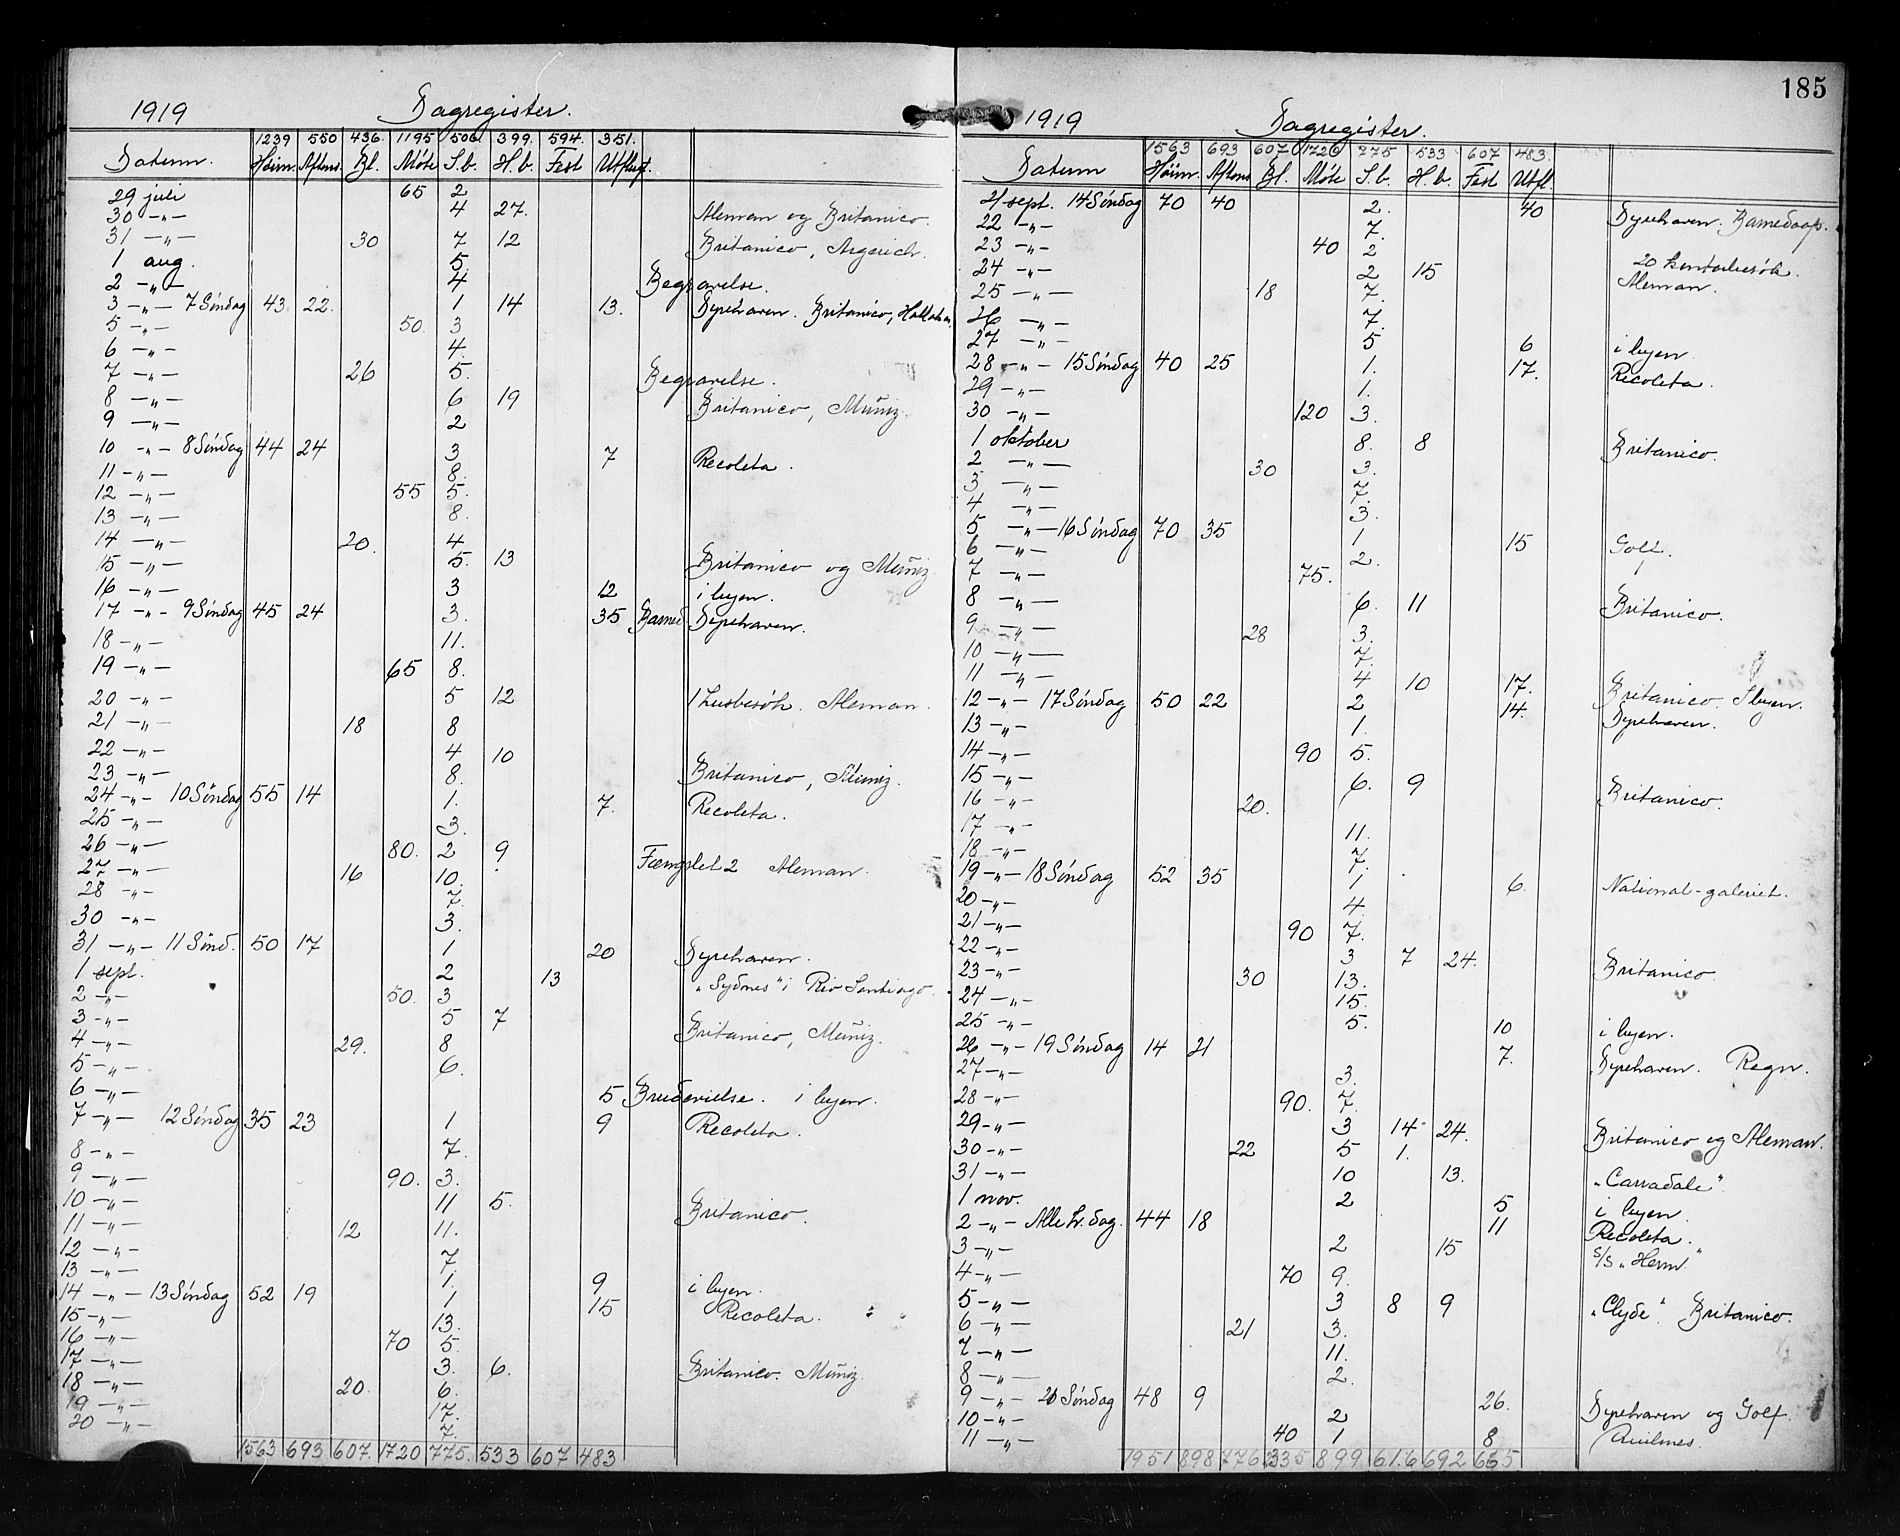 185
1919 Dagregister.
1239 550 436. 1195 506 399. 594. 351.
Datum. Høim. Aftens. Bl. Møte S.b. H.b. Fest Utflugt.
29 juli 65 2
30 -"- 4 27. Aleman og Britanico.
31 -"- 30 7 12 Britanico, Argerich.
1 aug. 5.
2 -"- 4. Begravelse.
3 -"- 7 Søndag 43. 22. 1 14 13. Dyrehaven. Britanico,
5 -"- 50. 3
6 -"- 4.
7 -"- 26 5. Begravelse.
8 -"- 6 19 Britanico, Muñiz.
9 -"- 2
10 -"- 8 Søndag 44 24 3 7 Recoleta.
11 -"- 8.
12 -"- 55 5.
13 -"- 8.
14 -"- 20. 4
15 -"- 5. 13 Britanico og Muñiz
16 -"- 3 12 i byen.
17 -"- 9 Søndag 45 24 3. 35 Barned Dyrehaven.
18 -"- 11.
19 -"- 65 8.
20 -"- 5 12 1 husbesøk. Aleman.
21 -"- 18 8
22 -"- 4 10
23 -"- 8. Britanico, Muniz.
24 -"- 10 Søndag 55 14 1. 7. Recoleta.
25 -"- 3.
26 -"- 80. 2 9
27 -"- 16 10. Fængslet 2 Aleman.
28 -"- 7.
30 -"- 3.
31 -"- 11 Sønd. 50 17 1 20 Dyrehaven.
1 sept. 2 13 "Sydnes" i Rio Santiago.
2 -"- 50. 3
3 -"- 5 7
4 -"- 29. 8 Britanico, Muniz.
5 -"- 6.
6 -"- 5 Brudevielse. i byen.
7 -"- 12 Søndag 35 23 1 9 Recoleta.
8 -"- 7.
9 -"- 90. 3.
10 -"- 11 5. Britanico.
11 -"- 12 11.
12 -"- 7
13 -"- 1. 9 i byen.
14 -"- 13 Søndag 52 19 1 15 Recoleta.
15 -"- 13.
16 -"- 70 5.
17 -"- 3. 6. Britanico. Muñiz.
18 -"- 20. 6.
19 -"- 17.
20 -"- 7.
1563 693 607. 1720 775. 533 607 483
1919 Dagregister.
1563 693 607 1720 775 533 607 483.
Datum Høim. Aftens Bl. Møte S.b. H.b. Fest Utfl.
21 sept. 14 Søndag 70 40 2. 40 Dyrehaven. Barnedaap.
22 -"- 7.
23 -"- 40 2
24 -"- 2 15 20 kontorbesøk. Aleman.
25 -"- 18 7.
26 -"- 7.
27 -"- 5 6 i byen
28 -"- 15 Søndag 40 25 1. 17. Recoleta.
29 -"- 1.
30 -"- 120 3.
1 oktober 8. 8 Britanico.
2 -"- 30 3.
3 -"- 7.
4 -"- 3.
5 -"- 16 Søndag 70 35 1 15 Golf.
6 -"- 2.
7 -"- 75.
8 -"- 6. 11 Britanico.
9 -"- 28 3.
10 -"- 7.
11 -"- 4 10 17. Britanico. I byen.
12 -"- 17 Søndag 50 22 2 14. Dyrehaven.
13 -"- 1.
14 -"- 90 5.
15 -"- 6. 9 Britanico.
16 -"- 20.
17 -"- 11.
18 -"- 7.
19 -"- 18 Søndag 52 35 1 6. National-galeriet.
20 -"- 4.
21 -"- 90 7.
22 -"- 3 7 24. Britanico
23 -"- 30 13.
24 -"- 15.
25 -"- 5. 10 i byen.
26 -"- 19 Søndag 14 21 7. Dyrehaven. Regn.
27 -"- 3.
28 -"- 90. 7.
29 -"- 3 14 24. Britanico og Aleman.
30 -"- 22 5 1.
31 -"- 10 13. "Carradale"
1 nov. 2 5 i byen.
2 -"- Alle h. dag. 44 18 11 Recoleta.
3 -"- 2 15 s/s "Herm"
4 -"- 70 9.
5 -"- 3 8 9 "Clyde". Britanico.
6 -"- 21 3.
7 -"- 11.
8 -"- 2.
9 -"- 20 Søndag 48 9 26. Dyrehaven og Golf.
10 -"- 2
11 -"- 40 1 8 Quilmes.
1951 898 776 2335 899. 616 692 665